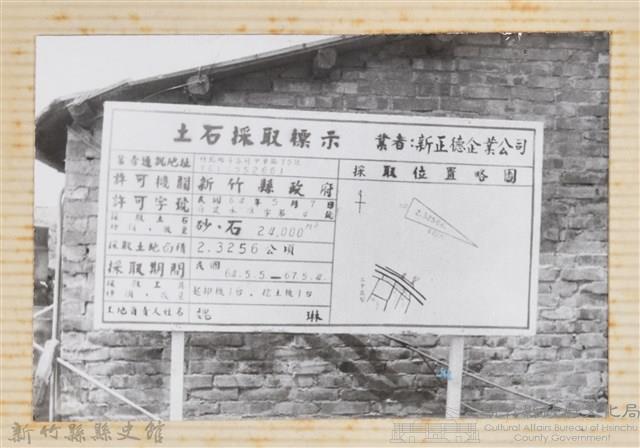 土石採取標示
業者:新正德企業公司
業者通訊地址
許可機關 新竹縣政府
許可字號 民國64年5月7日
採取土石種類、數量 砂·石 24,000M³
採取土地面積 2.3256公頃
採取期間 民國
64.5.5—67.5.4.
採取工具種類、數量 起卸機1台、挖土機1台
土地負責人姓名 琳
採取位置略圖
2.3256
新竹縣縣史館
Cultural Affairs Bureau of Hsinchu
County Government